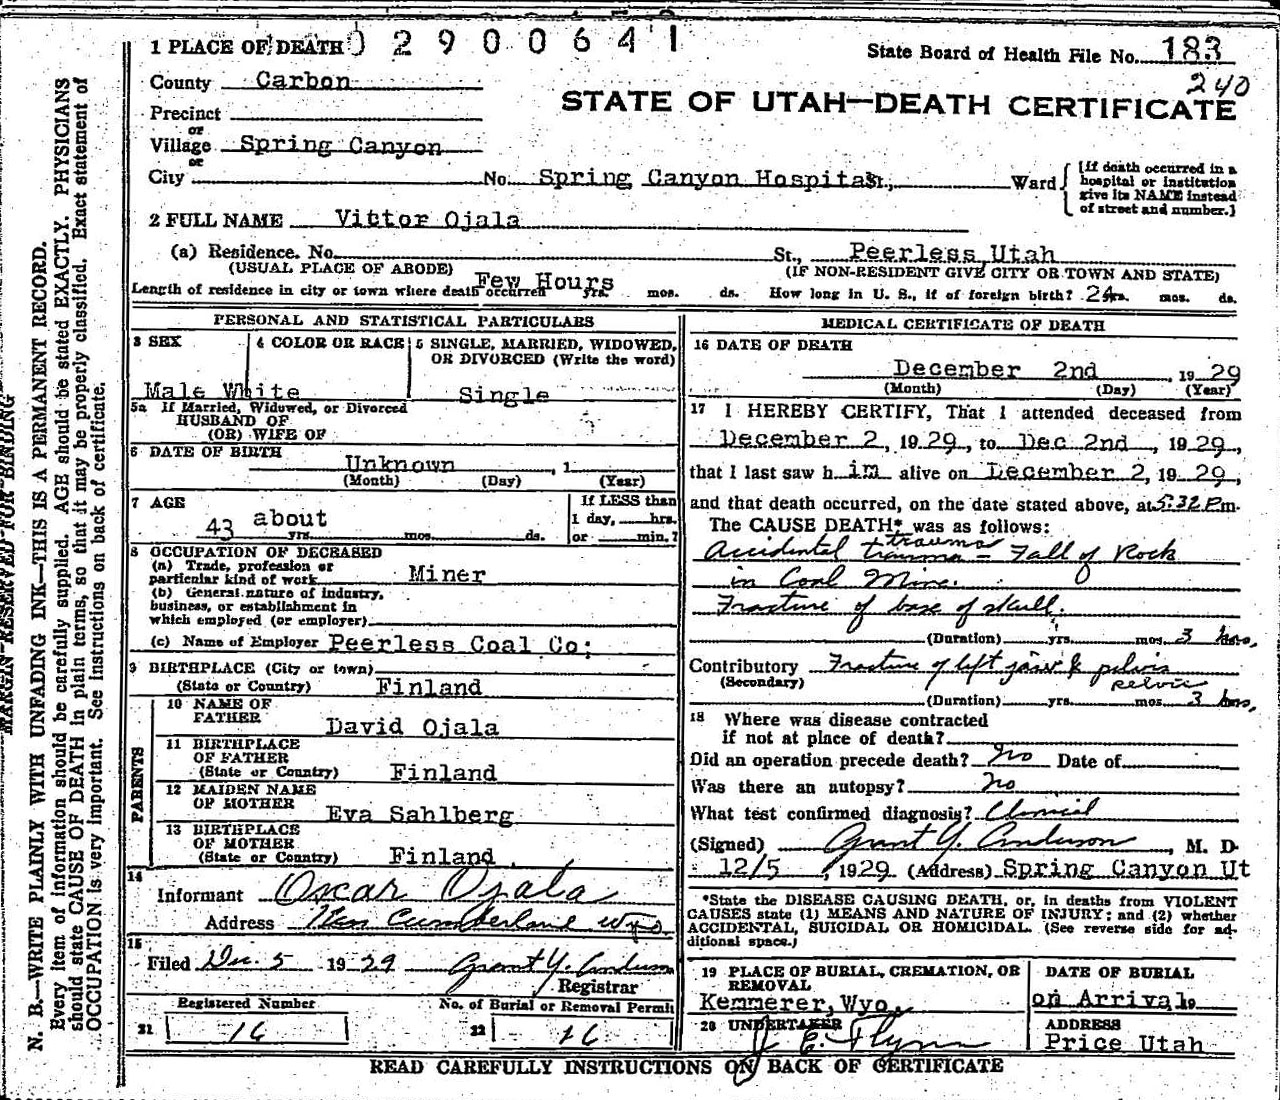 1 PLACE OF DEATH 02900641
State Board of Health File No. 183
240
County Carbon
STATE OF UTAH—DEATH CERTIFICATE
Precinct
or
Village Spring Canyon
or
City No. Spring Canyon Hospital St., Ward
[If death occurred in a
hospital or institution
give its NAME instead
of street and number.]
2 FULL NAME Victor Ojala
(a) Residence. No. St., Peerless, Utah
(USUAL PLACE OF ABODE) (IF NON-RESIDENT GIVE CITY OR TOWN AND STATE)
Length of residence in city or town where death occurred Few Hours yrs. mos. ds. How long in U. S., if of foreign birth? 24 yrs. mos. ds.
PERSONAL AND STATISTICAL PARTICULARS
3 SEX 4 COLOR OR RACE 5 SINGLE, MARRIED, WIDOWED,
OR DIVORCED (Write the word)
Male White Single
5a If Married, Widowed, or Divorced
HUSBAND OF
(OR) WIFE OF
6 DATE OF BIRTH
Unknown , 1
(Month) (Day) (Year)
7 AGE If LESS than
43 about yrs. mos. ds. 1 day, hrs.
or min.?
8 OCCUPATION OF DECEASED
(a) Trade, profession or
particular kind of work Miner
(b) General nature of industry,
business, or establishment in
which employed (or employer)
(c) Name of Employer Peerless Coal Co;
9 BIRTHPLACE (City or town)
(State or Country) Finland
PARENTS
10 NAME OF
FATHER David Ojala
11 BIRTHPLACE
OF FATHER
(State or Country) Finland
12 MAIDEN NAME
OF MOTHER Eva Sahlberg
13 BIRTHPLACE
OF MOTHER
(State or Country) Finland
14
Informant Oscar Ojala
Address Cumberland Wyo.
15
Filed Dec. 5 1929 Grant Y. Anderson
Registrar
Registered Number No. of Burial or Removal Permit
21 16 22 16
MEDICAL CERTIFICATE OF DEATH
16 DATE OF DEATH
December 2nd , 19 29
(Month) (Day) (Year)
17 I HEREBY CERTIFY, That I attended deceased from
December 2, 19 29, to Dec 2nd, 19 29,
that I last saw h im alive on December 2, 19 29,
and that death occurred, on the date stated above, at 5:32 P m.
The CAUSE DEATH* was as follows:
trauma
Accidental trauma = Fall of Rock
in Coal Mine.
Fracture of base of skull.
(Duration) yrs. mos. 3 hrs.
Contributory Fracture of left jaw & pelvis
(Secondary) pelvis
(Duration) yrs. mos. 3 hrs.
18 Where was disease contracted
if not at place of death?
Did an operation precede death? No Date of
Was there an autopsy? no
What test confirmed diagnosis? Clinical
(Signed) Grant Y. Anderson, M. D.
12/5, 1929 (Address) Spring Canyon Ut
*State the DISEASE CAUSING DEATH, or, in deaths from VIOLENT
CAUSES state (1) MEANS AND NATURE OF INJURY; and (2) whether
ACCIDENTAL, SUICIDAL OR HOMICIDAL. (See reverse side for ad-
ditional space.)
19 PLACE OF BURIAL, CREMATION, OR
REMOVAL
Kemmerer, Wyo.
DATE OF BURIAL
on Arrival 19
20 UNDERTAKER
J E. Flynn
ADDRESS
Price Utah
READ CAREFULLY INSTRUCTIONS ON BACK OF CERTIFICATE
MARGIN RESERVED FOR BINDING
N. B.—WRITE PLAINLY WITH UNFADING INK—THIS IS A PERMANENT RECORD.
Every item of information should be carefully supplied. AGE should be stated EXACTLY. PHYSICIANS
should state CAUSE OF DEATH in plain terms, so that it may be properly classified. Exact statement of
OCCUPATION is very important. See instructions on back of certificate.